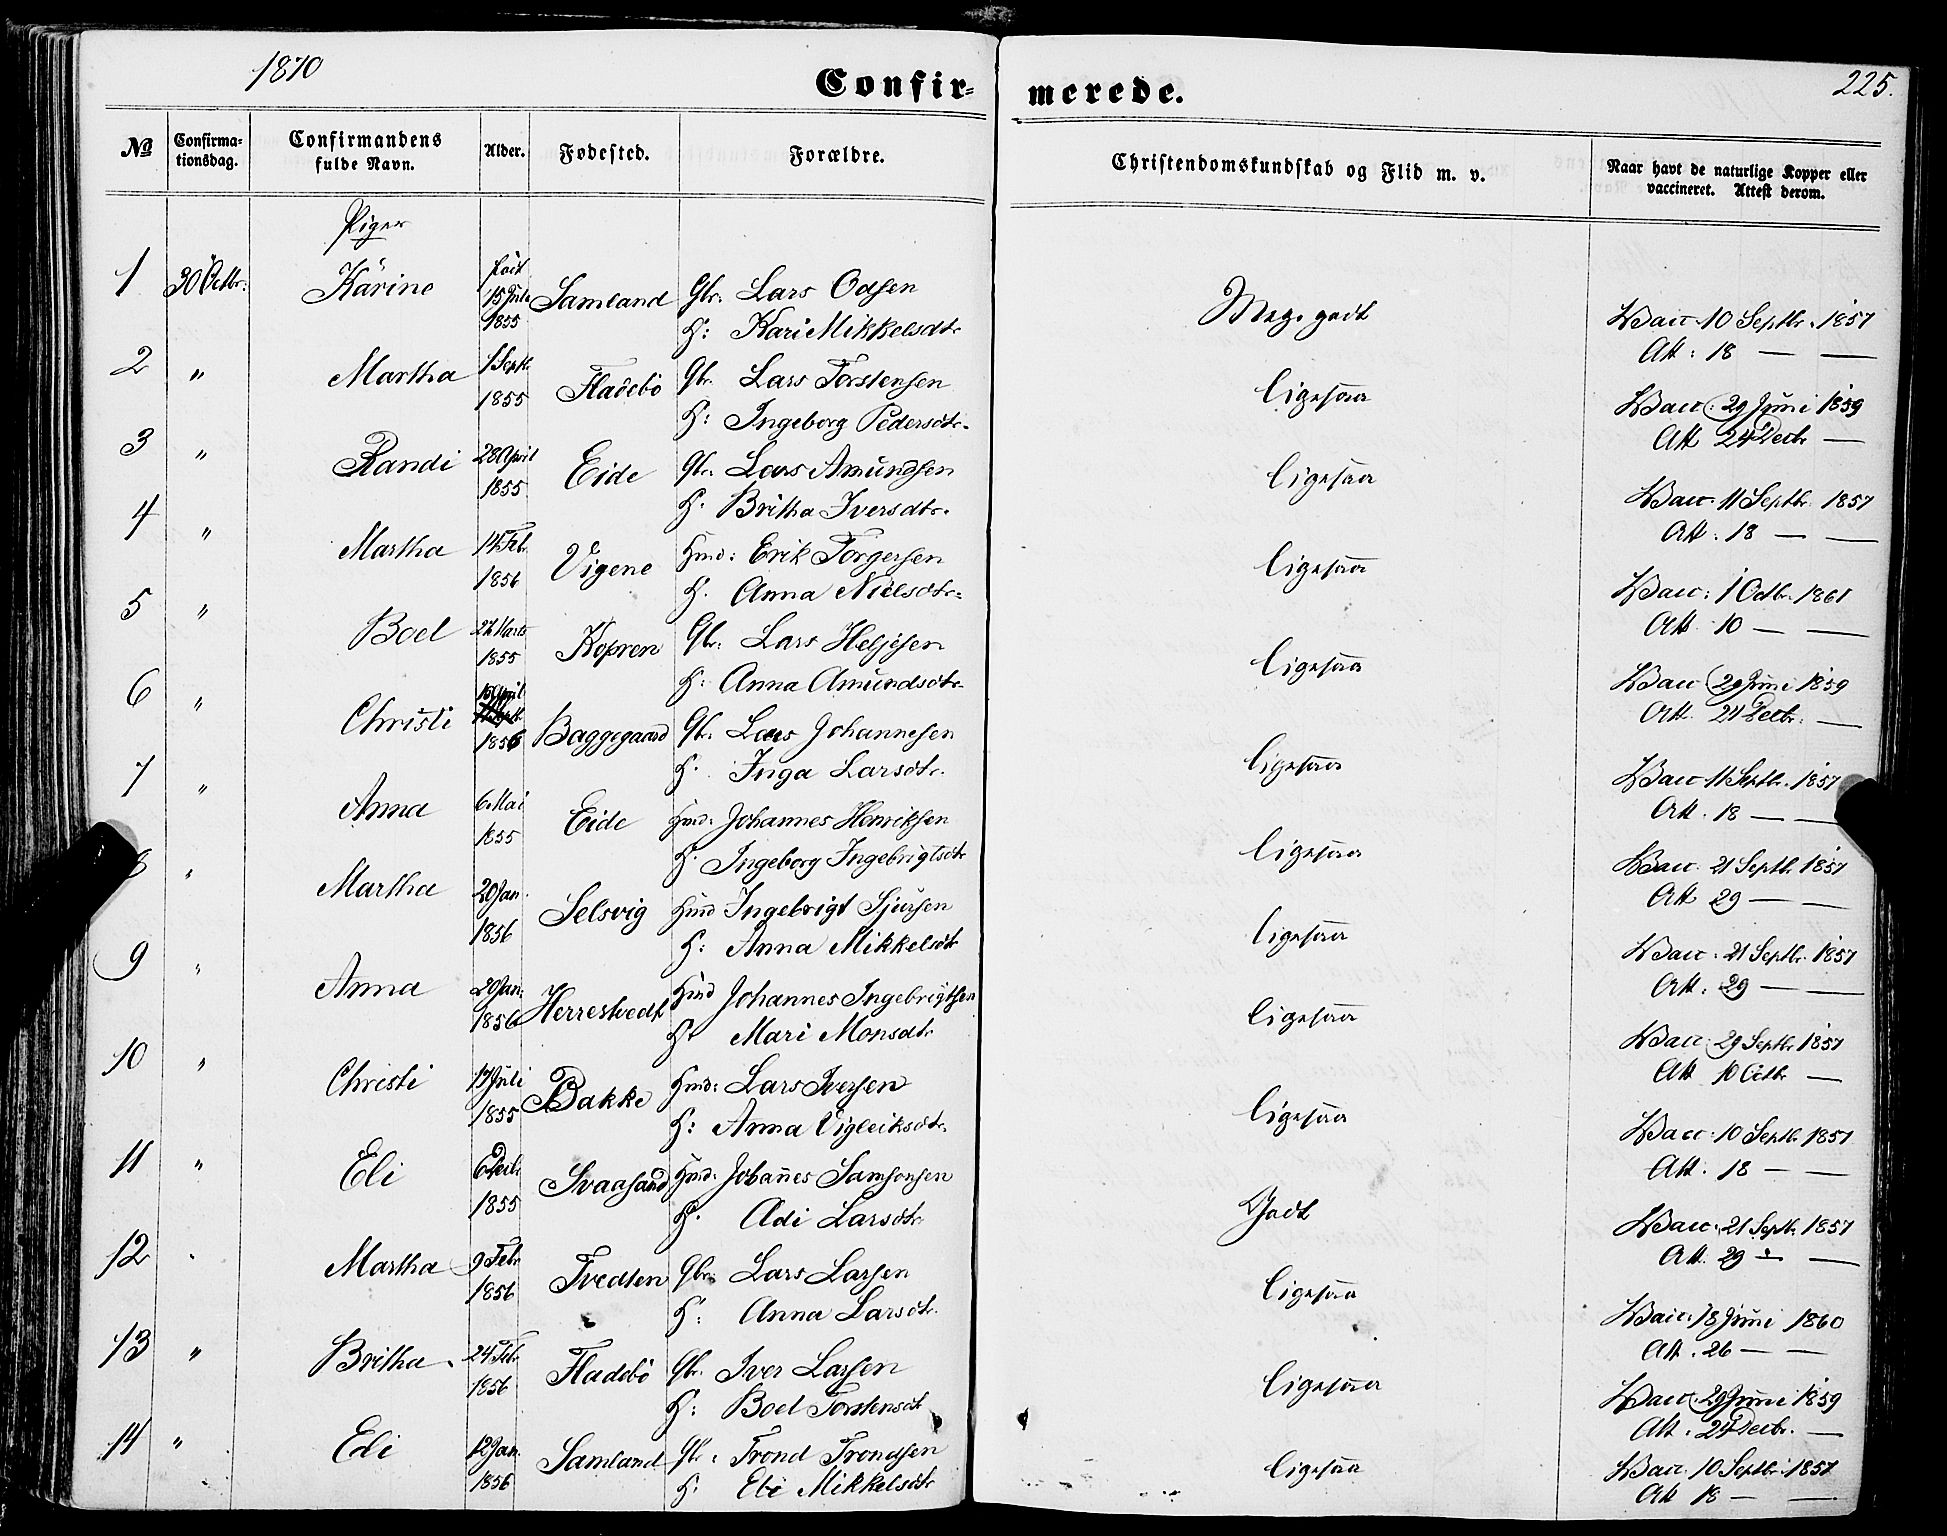 1870
Confir-
merede.
225.
No
Confirma-
tionsdag.
Confirmandens
fulde Navn.
Alder.
Fødested.
Forældre.
Christendomskundskab og Flid m. v.
Naar havt de naturlige Kopper eller
vaccineret. Attest derom.
Piger
1 30 Octbr: Karine født 15 Juli 1855 Samland Gbr. Lars Odsen Meg. godt Vacc. 10 Septbr. 1857
H: Kari Mikkelsdtr. Att: 18 — —
2 " Martha 1 Septr. 1855 Fladebø Gbr. Lars Torstensen ligesaa Vacc: 29 Juni 1859
H: Ingeborg Pedersdtr. Att 24 Decbr —
3 " Randi 28 April 1855 Eide Gbr. Lars Amundsen ligesaa Vacc. 11 Septbr. 1857
H. Britha Iversdtr. Att: 18 — —
4 " Martha 14 Feb. 1856 Vigene Huusmd: Erik Torgersen ligesaa Vacc: 1 Octbr. 1861
H. Anna Nielsdtr. Att. 10 — —
5 " Boel 27 Marts 1855 Kopren Gbr. Lars Heljesen ligesaa Vacc 29 Juni 1859
H: Anna Amundsdtr. Att. 24 Decbr. —
6 " Christi 15 April 1856 Baggegaard Gbr. Lars Johannesen ligesaa Vacc 11 Septbr. 1857
H. Inga Larsdtr. Att. 18 — —
7 " Anna 6 Mai 1855 Eide Hmd: Johannes Henriksen ligesaa Vacc. 21 Septbr 1857
H. Ingeborg Ingebrigtsdtr Att 29 — —
8 " Martha 20 Jan. 1856 Selsvig Hmd Ingebrigt Sjursen ligesaa Vacc: 21 Septbr. 1857
H: Anna Mikkelsdtr Att: 29 — —
9 " Anna 20 Jan. 1856 Herrestvedt Hmd Johannes Ingebrigtsen ligesaa Vacc: 29 Septbr 1857
H: Mari Monsdtr Att 10 Octbr —
10 " Christi 17 Juli 1855 Bakke Hmd: Lars Iversen ligesaa Vacc: 10 Septbr 1857
H: Anna Vigleiksdtr. Att. 18 — —
11 " Eli 6 Decbr 1855 Svaasand Hmd: Johannes Samsonsen Godt Vacc: 21 Septbr 1857
H. Adi Larsdtr Att. 29 — —
12 " Martha 9 Febr 1856 Tvedten Gbr. Lars Larsen ligesaa Vacc: 18 Juni 1860
H: Anna Larsdtr. Att. 26 — —
13 " Britha 24 Febr 1856 Fladebø Gbr. Iver Larsen ligesaa Vacc. 29 Juni 1859
H: Boel Torstensdtr Att. 24 Decbr. —
14 " Eli 12 Jan. 1856 Samland Gbr: Trond Trondsen ligesaa Vacc. 10 Septbr. 1857
H: Eli Mikkelsdtr Att 18 — —